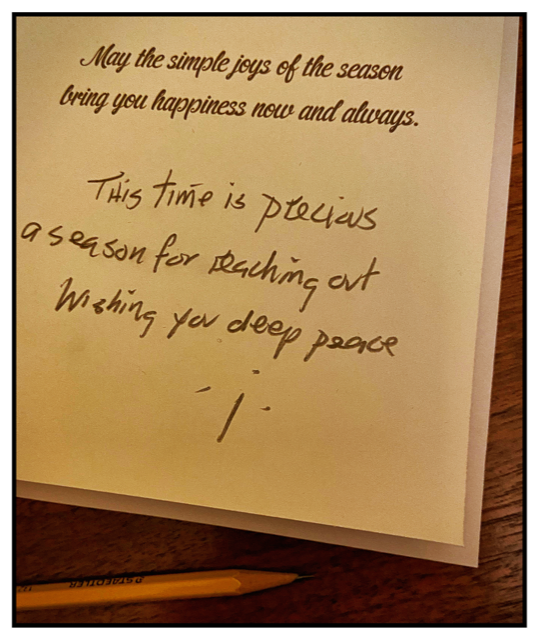 May the simple joys of the season
bring you happiness now and always.
This time is precious
a season for reaching out
Wishing you deep peace
STAEDTLER